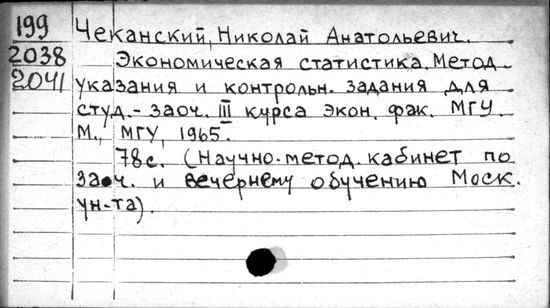 199 Чеканский, Николай Анатольевич.
2038 Экономическая статистика. Метод.
2041 указания и контрольн. задания для
студ.-заоч. III курса экон. фак. МГУ.
М., МГУ, 1965.
78 с. (Научно-метод. кабинет по
заоч. и вечернему обучению Моск.
ун-та).